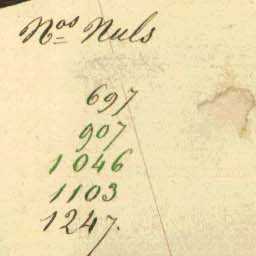 Nos Nuls
697
907
1046
1103
1247.